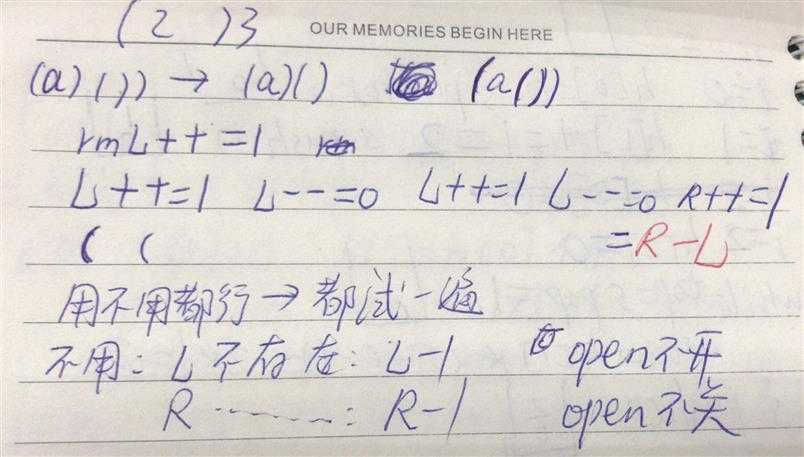 ( 2 ) 3 OUR MEMORIES BEGIN HERE
(a)()) → (a)() (a())
rmL++=1
L++=1 L--=0 L++=1 L--=0 R++=1
( ( =R-L
用不用都行→都试一遍
不用: L不存在: L-1 open不开
R ------: R-1 open不关